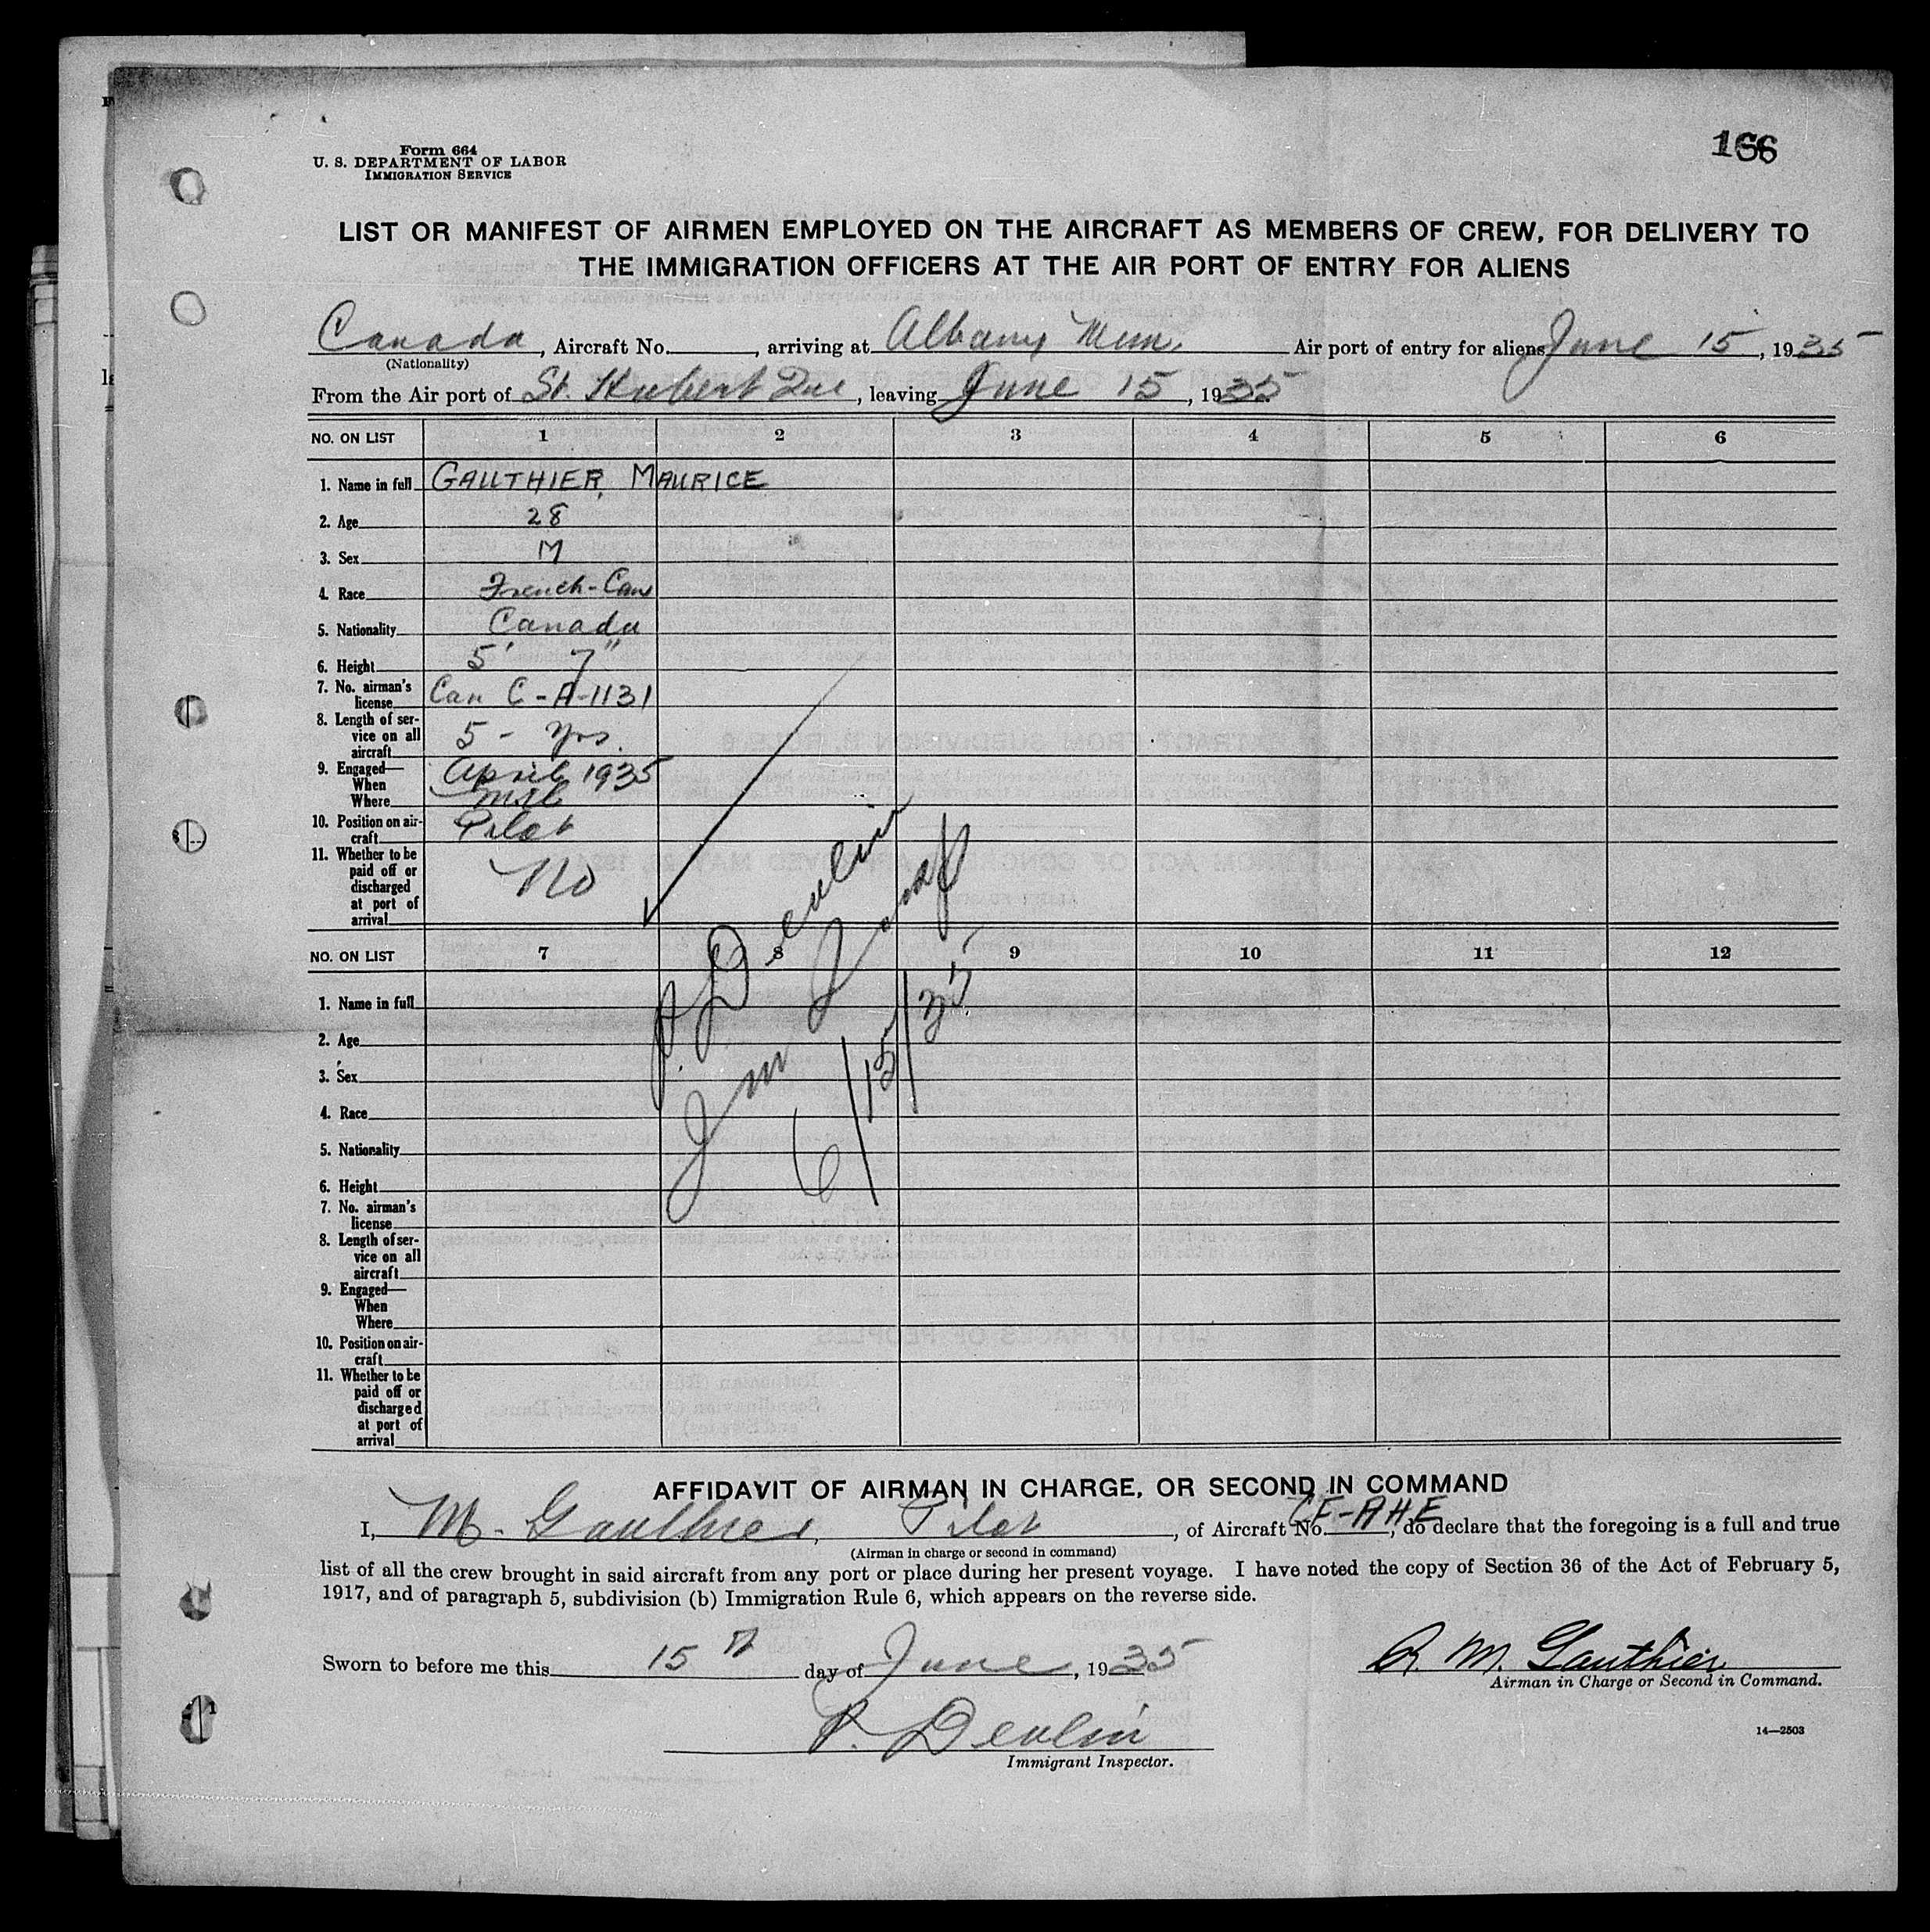 166
Form 664
U. S. DEPARTMENT OF LABOR
IMMIGRATION SERVICE
LIST OR MANIFEST OF AIRMEN EMPLOYED ON THE AIRCRAFT AS MEMBERS OF CREW, FOR DELIVERY TO
THE IMMIGRATION OFFICERS AT THE AIR PORT OF ENTRY FOR ALIENS
Canada, Aircraft No. , arriving at Albany Mun. Air port of entry for aliens June 15, 1935
(Nationality)
From the Air port of St. Hubert Que, leaving June 15, 1935
NO. ON LIST 1 2 3 4 5 6
1. Name in full GAUTHIER, MAURICE
2. Age 28
3. Sex M
4. Race French-Can
5. Nationality Canada
6. Height 5' 7"
7. No. airman's
license Can C-A-1131
8. Length of ser-
vice on all
aircraft 5 - yrs.
9. Engaged—
When April 1935
Where Mtl
10. Position on air-
craft Pilot
11. Whether to be
paid off or
discharged
at port of
arrival No
P. Devlin
Imm Insp
6/15/35
NO. ON LIST 7 8 9 10 11 12
1. Name in full
2. Age
3. Sex
4. Race
5. Nationality
6. Height
7. No. airman's
license
8. Length of ser-
vice on all
aircraft
9. Engaged—
When
Where
10. Position on air-
craft
11. Whether to be
paid off or
discharged
at port of
arrival
AFFIDAVIT OF AIRMAN IN CHARGE, OR SECOND IN COMMAND
I, M. Gauthier, Pilot, of Aircraft No. CF-AHE, do declare that the foregoing is a full and true
(Airman in charge or second in command)
list of all the crew brought in said aircraft from any port or place during her present voyage. I have noted the copy of Section 36 of the Act of February 5,
1917, and of paragraph 5, subdivision (b) Immigration Rule 6, which appears on the reverse side.
Sworn to before me this 15th day of June, 1935
R. M. Gauthier
Airman in Charge or Second in Command.
P. Devlin
Immigrant Inspector.
14—2503